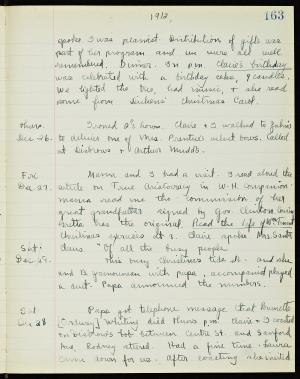 1912.
163
spoke. I was pianist. Distribution of gifts was
part of her program and we were all well
remembered. Dinner. In p.m. Claire's birthday
was celebrated with a birthday cake, 9 candles.
We lighted the tree, had music, & also read
some from Dickens' Christmas Carol.
Thurs. Ironed 2½ hours. Claire & I walked to
Dec 26. to deliver one of Mrs. Prentice's select boxes. Called
at Disbrows & Arthur Mudd's.
Fri. Mama and I had a visit. I read aloud the
Dec 27. article on True Aristocracy in W.H. Companion.
Mama read me the commission of her
great grandfather signed by Gov. Clinton.
has the original. Read the life of
Christmas exercises at 3. Claire spoke
Sat. Claus "Of all the busy people
This busy Christmas tide &c. and she
and B. Gamouneau with papa, accompanied played
a duet. Papa announced the numbers.
Sat Papa got telephone message that Burdette
Dec 28 Whiting died Thurs p.m. Claire & I coasted
on Disbrow's bob between Centre St. and Sanford
Ave. Rodney steered. Had a fine time. Laura
came down for us. After coasting she invited